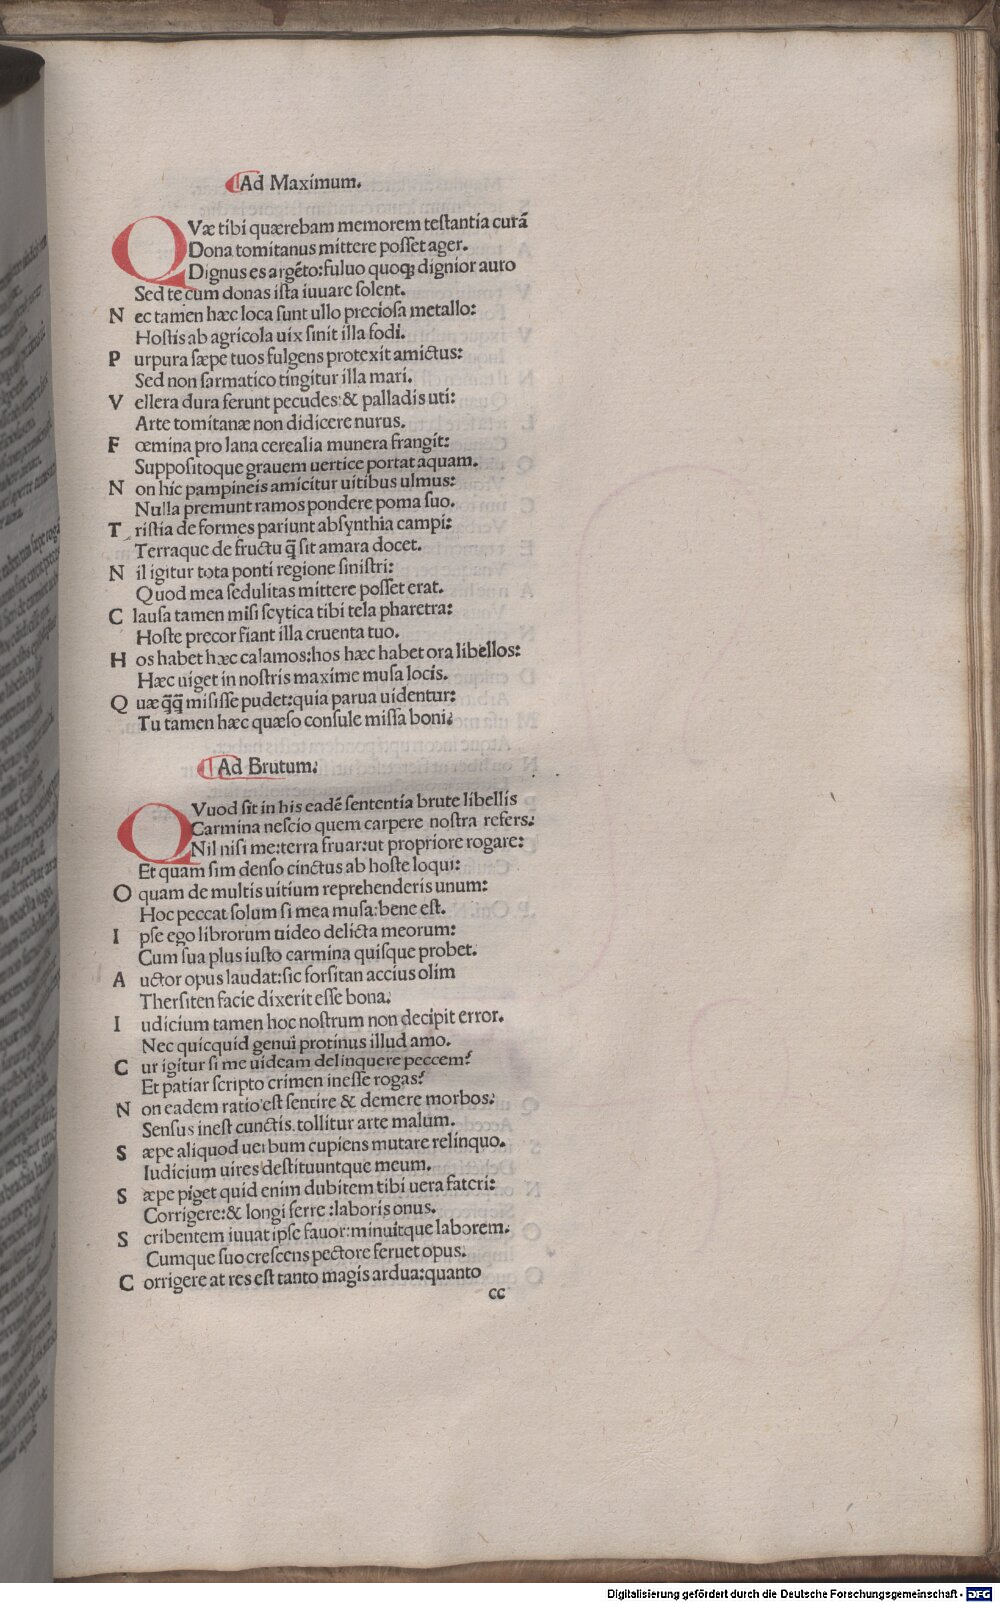 Ad Maximum.
QVæ tibi quærebam memorem testantia curā
Dona tomitanus mittere posset ager.
Dignus es argēto: fuluo quoqꝫ dignior auro
Sed te cum donas ista iuuare solent.
N ec tamen hæc loca sunt ullo preciosa metallo:
Hostis ab agricola uix sinit illa fodi.
P urpura sæpe tuos fulgens protexit amictus:
Sed non sarmatico tingitur illa mari.
V ellera dura ferunt pecudes: & palladis uti:
Arte tomitanæ non didicere nurus.
F œmina pro lana cerealia munera frangit:
Suppositoque grauem uertice portat aquam.
N on hic pampineis amicitur uitibus ulmus:
Nulla premunt ramos pondere poma suo.
T ristia de formes pariunt absynthia campi:
Terraque de fructu q̄ sit amara docet.
N il igitur tota ponti regione sinistri:
Quod mea sedulitas mittere posset erat.
C lausa tamen misi scytica tibi tela pharetra:
Hoste precor fiant illa cruenta tuo.
H os habet hæc calamos: hos hæc habet ora libellos:
Hæc uiget in nostris maxime musa locis.
Q uæ q̄q̄ misisse pudet: quia parua uidentur:
Tu tamen hæc quæso consule missa boni.
Ad Brutum.
QVuod sit in his eadē sententia brute libellis
Carmina nescio quem carpere nostra refers.
Nil nisi me: terra fruar: ut propriore rogare:
Et quam sim denso cinctus ab hoste loqui:
O quam de multis uitium reprehenderis unum:
Hoc peccat solum si mea musa: bene est.
I pse ego librorum uideo delicta meorum:
Cum sua plus iusto carmina quisque probet.
A uctor opus laudat: sic forsitan accius olim
Thersiten facie dixerit esse bona.
I udicium tamen hoc nostrum non decipit error.
Nec quicquid genui protinus illud amo.
C ur igitur si me uideam delinquere peccem?
Et patiar scripto crimen inesse rogas?
N on eadem ratio est sentire & demere morbos.
Sensus inest cunctis. tollitur arte malum.
S æpe aliquod uerbum cupiens mutare relinquo.
Iudicium uires destituuntque meum.
S æpe piget quid enim dubitem tibi uera fateri:
Corrigere: & longi ferre: laboris onus.
S cribentem iuuat ipse fauor: minuitque laborem.
Cumque suo crescens pectore feruet opus.
C orrigere at res est tanto magis ardua: quanto
cc
Digitalisierung gefördert durch die Deutsche Forschungsgemeinschaft - DFG